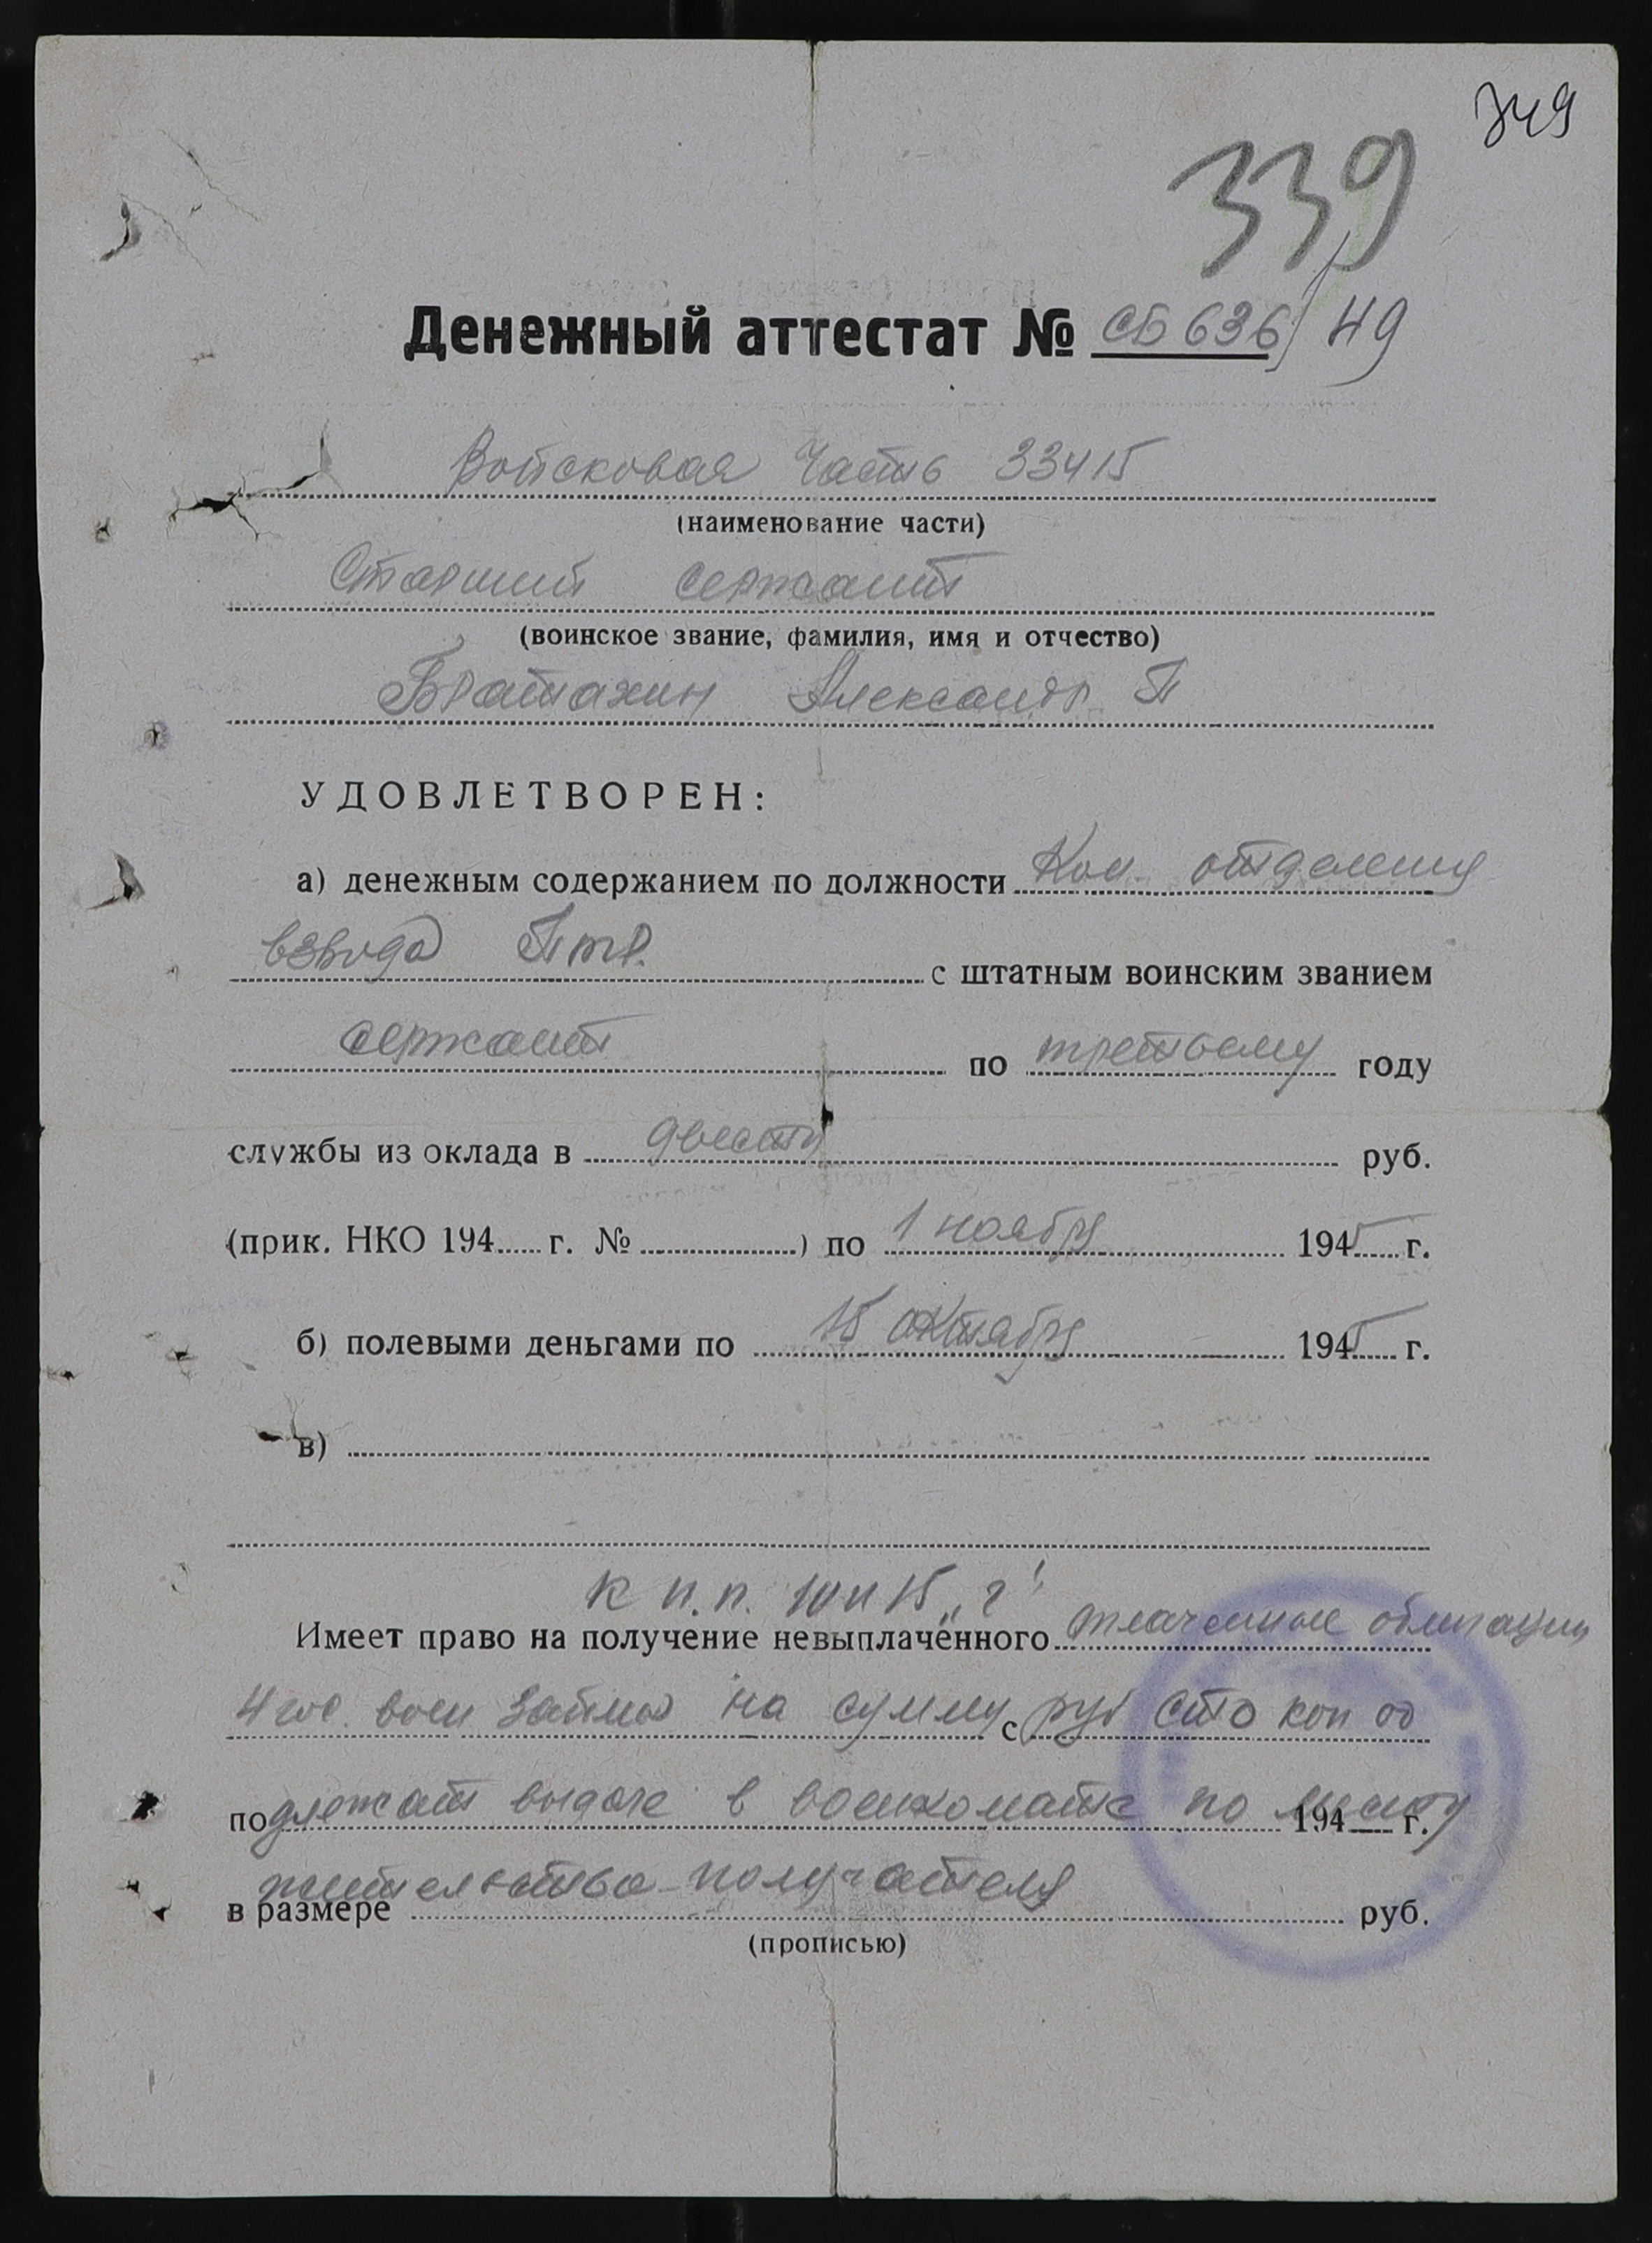 349
339
Денежный аттестат № СБ 636/49
Войсковая Часть 33415
(наименование части)
Старший сержант
(воинское звание, фамилия, имя и отчество)
Братахин Александр П
УДОВЛЕТВОРЕН:
а) денежным содержанием по должности Ком. отделения
взвода Птр. с штатным воинским званием
сержант по третьему году
службы из оклада в двести руб.
(прик. НКО 194 г. № ) по 1 ноября 1945 г.
б) полевыми деньгами по 15 октября 1945 г.
в)
К п.п. 10 и 15 „г"
Имеет право на получение невыплаченного облигации
4 гос. воен займа на сумму с руб сто коп 00
подлежат выдаче в военкомате по месту 194 г.
жительства получателя
в размере руб.
(прописью)